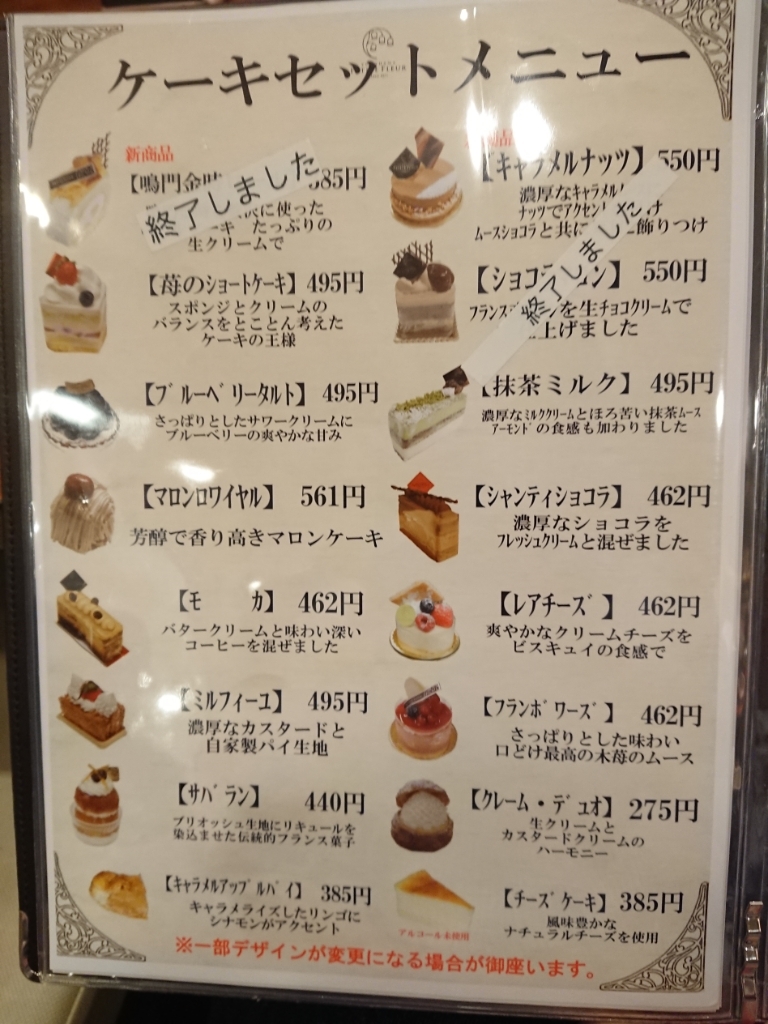 ケーキセットメニュー
新商品
【鳴門金時 385円
終了しました
に使った
ーキ たっぷりの
生クリームで
【苺のショートケーキ】 495円
スポンジとクリームの
バランスをとことん考えた
ケーキの王様
【ブルーベリータルト】 495円
さっぱりとしたサワークリームに
ブルーベリーの爽やかな甘み
【マロンロワイヤル】 561円
芳醇で香り高きマロンケーキ
【モカ】 462円
バタークリームと味わい深い
コーヒーを混ぜました
【ミルフィーユ】 495円
濃厚なカスタードと
自家製パイ生地
【サバラン】 440円
ブリオッシュ生地にリキュールを
染込ませた伝統的フランス菓子
【キャラメルアップルパイ】 385円
キャラメライズしたリンゴに
シナモンがアクセント
【キャラメルナッツ】 550円
濃厚なキャラメル
ナッツでアクセント け
ムースショコラと共に 飾りつけ
終了しました
【ショコラ ン】 550円
フランス を生チョコクリームで
上げました
【抹茶ミルク】 495円
濃厚なミルククリームとほろ苦い抹茶ムース
アーモンドの食感も加わりました
【シャンティショコラ】 462円
濃厚なショコラを
フレッシュクリームと混ぜました
【レアチーズ】 462円
爽やかなクリームチーズを
ビスキュイの食感で
【フランボワーズ】 462円
さっぱりとした味わい
口どけ最高の木苺のムース
【クレーム・デュオ】 275円
生クリームと
カスタードクリームの
ハーモニー
【チーズケーキ】 385円
風味豊かな
ナチュラルチーズを使用
アルコール未使用
※一部デザインが変更になる場合が御座います。